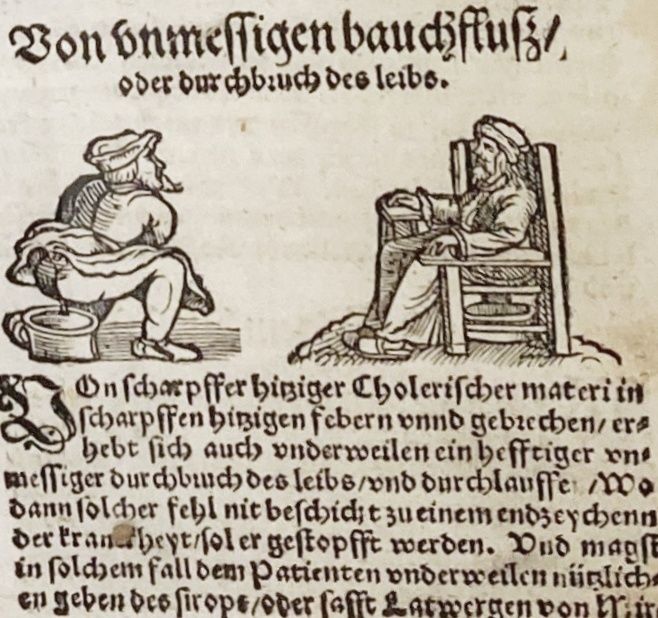 Von vnmessigen bauchfluß/
oder durchbruch des leibs.
VOn scharpffer hitziger Cholerischer materi in
scharpffen hitzigen febern vnnd gebrechen/ er⸗
hebt sich auch vnderweilen ein hefftiger vn⸗
messiger durchbruch des leibs/vnd durchlauffe /Wo
dann solcher fehl nit beschicht zu einem endzeychenn
der kranckheyt/sol er gestopfft werden. Vnd magst
in solchem fall dem Patienten vnderweilen nützlich⸗
en geben des sirops/oder safft Latwergen von